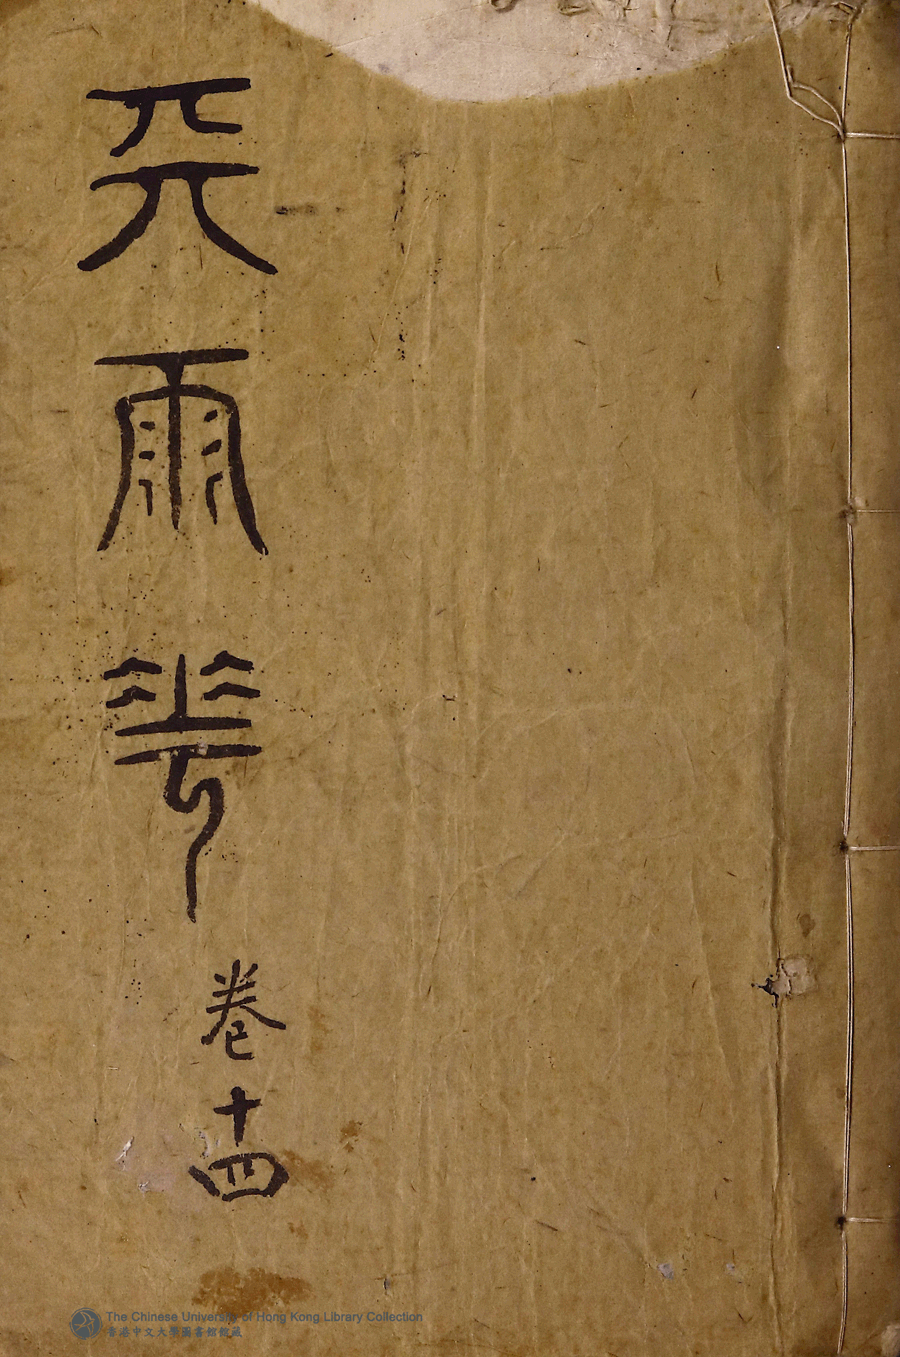 天雨花
卷十四
The Chinese University of Hong Kong Library Collection
香港中文大學圖書館館藏